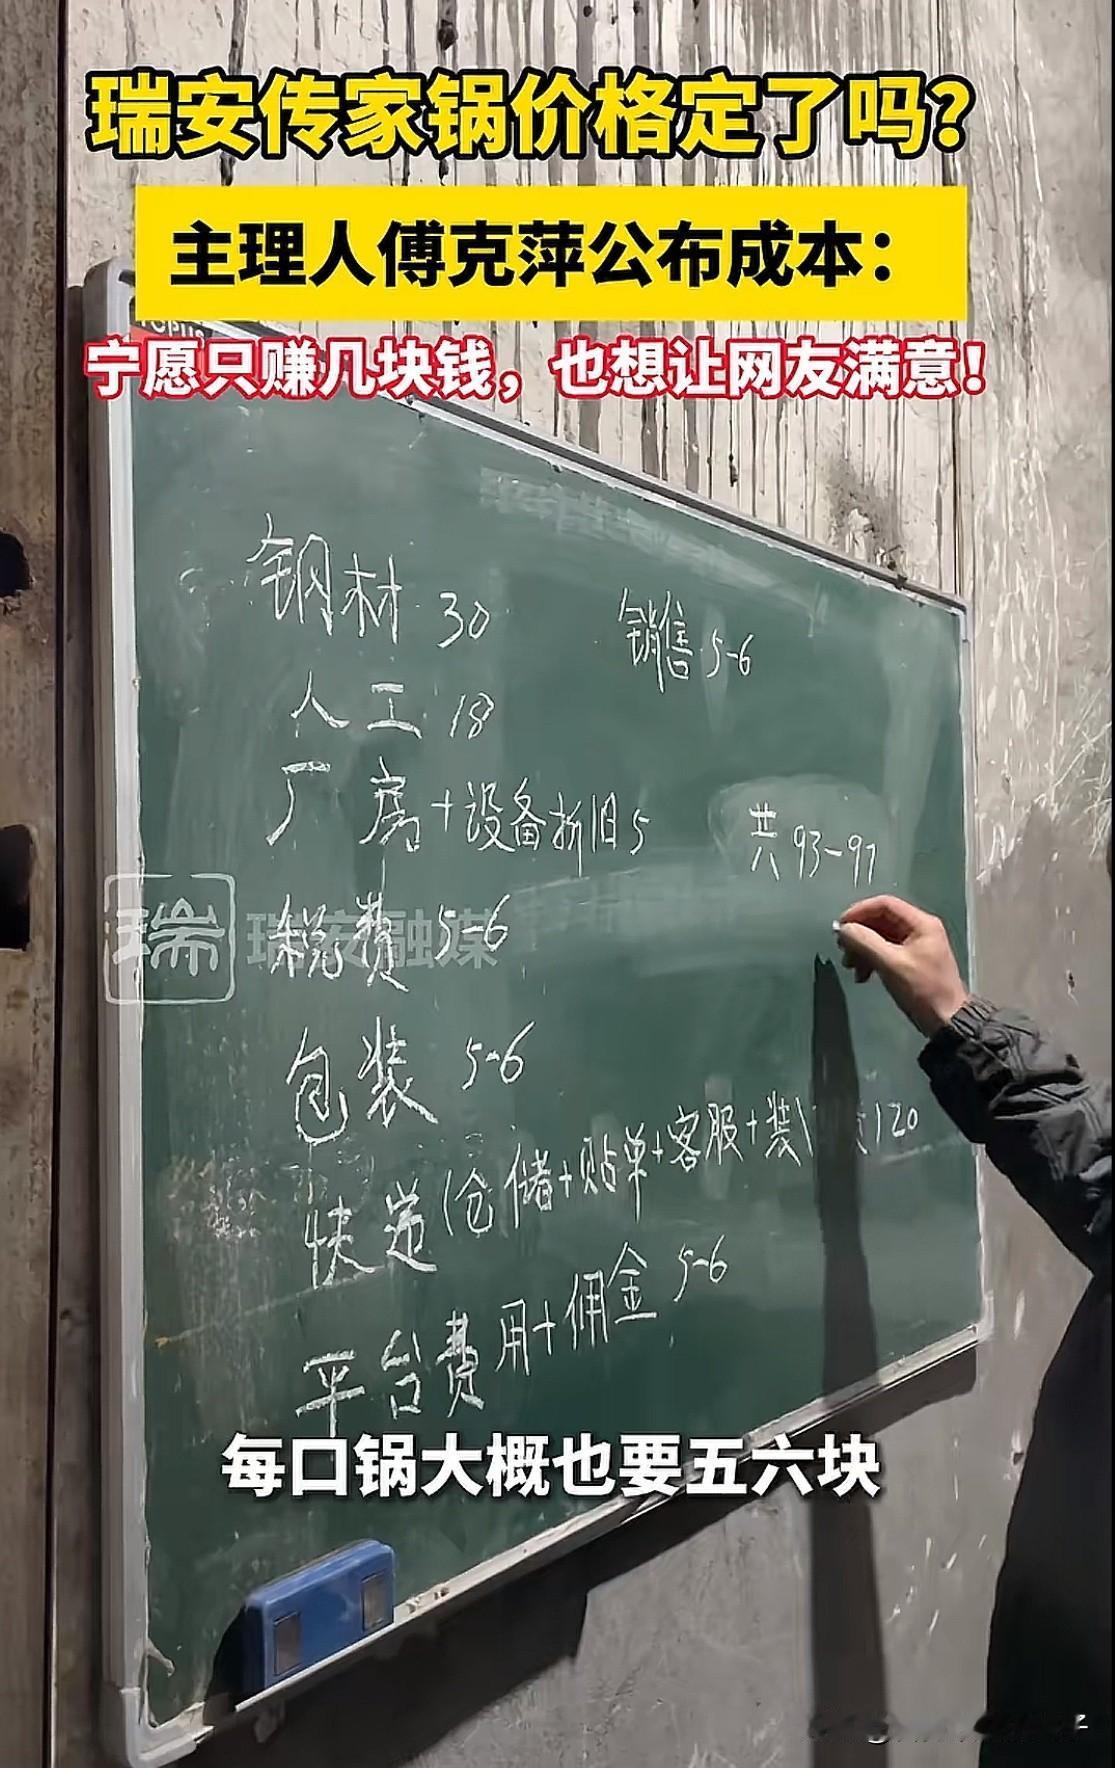 瑞安传家锅价格定了吗？
主理人傅克萍公布成本：
宁愿只赚几块钱，也想让网友满意！
钢材 30
销售 5-6
人工 18
厂房+设备折旧5
共 93-97
税费 5-6
瑞 瑞安融媒
包装 5-6
快递(仓储+贴单+客服+装 120
平台费用+佣金 5-6
每口锅大概也要五六块